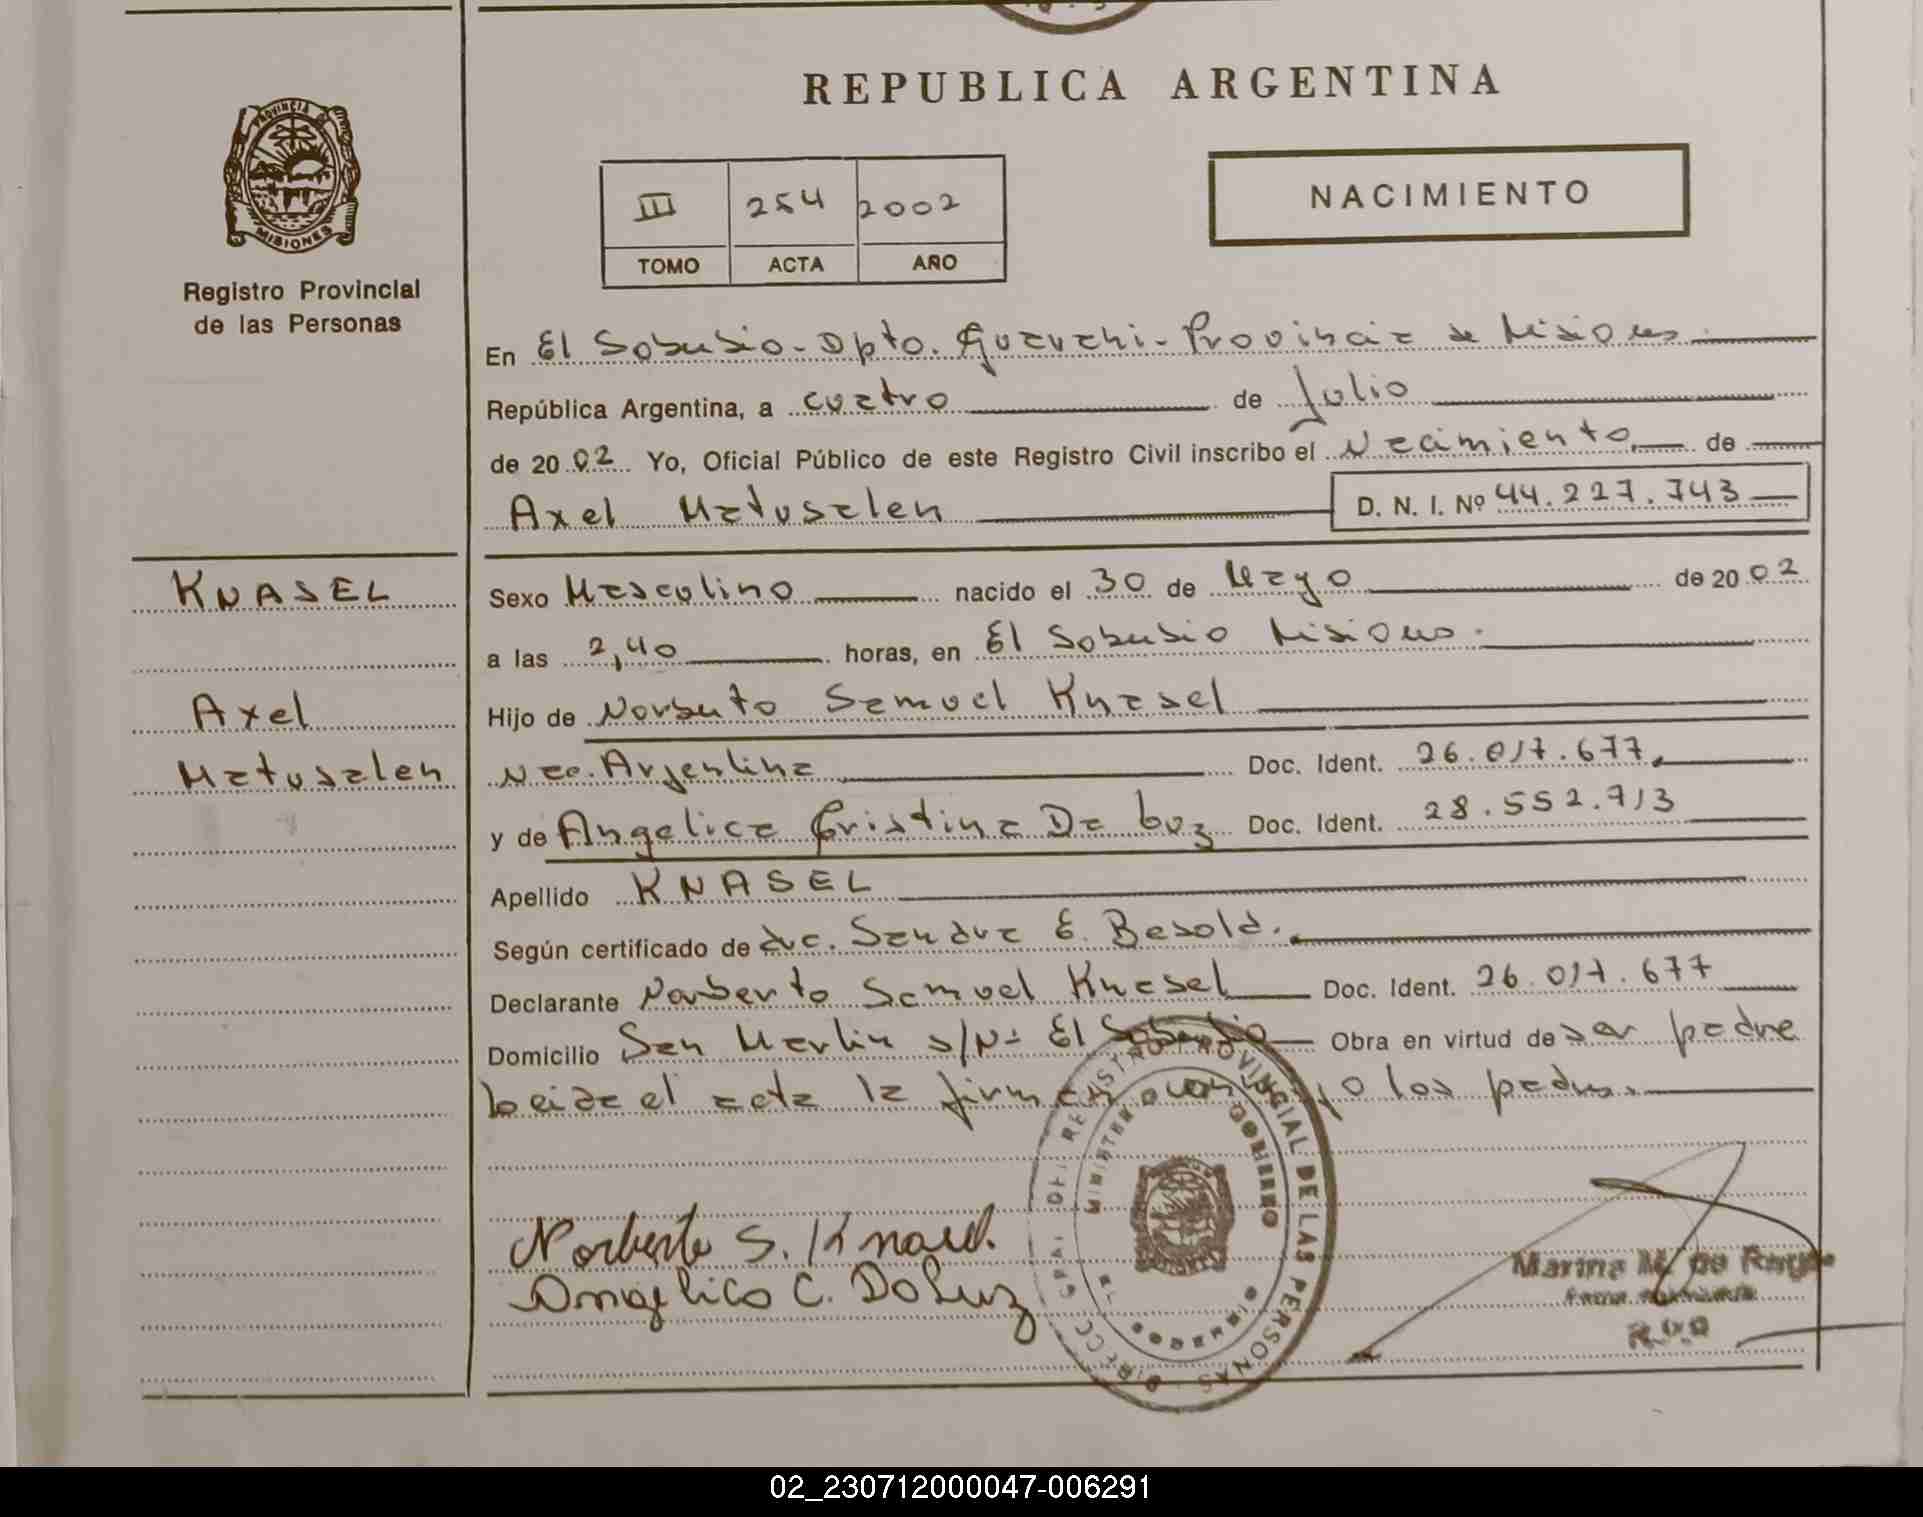 PROVINCIA
MISIONES
Registro Provincial
de las Personas
REPUBLICA ARGENTINA
III 254 2002
TOMO ACTA AÑO
NACIMIENTO
En El Soberbio - Dpto. Guarani - Provincia de Misiones
República Argentina, a cuatro de Julio
de 2002 Yo, Oficial Público de este Registro Civil inscribo el Nacimiento de
Axel Matusalen D. N. I. Nº 44.227.743
KNASEL
Axel
Matusalen
Sexo Masculino nacido el 30 de Mayo de 2002
a las 2,40 horas, en El Soberbio Misiones.
Hijo de Norberto Samuel Knasel
Nac. Argentina Doc. Ident. 26.017.677
y de Angelica Cristina Da Luz Doc. Ident. 28.552.713
Apellido KNASEL
Según certificado de Sandra E. Besold.
Declarante Norberto Samuel Knasel Doc. Ident. 26.017.677
Domicilio San Martin s/Nº El Soberbio Obra en virtud de ser padre
Leida el acta la firman los padres.
Norberto S. Knasel.
Angelica C. Da Luz
REGISTRO PROVINCIAL DE LAS PERSONAS
GOBIERNO
Marina M. De
02_230712000047-006291